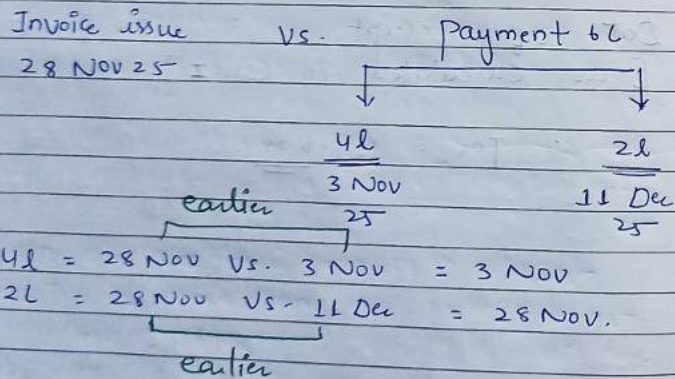 Invoice issue vs. Payment 6L
28 NOV 25 =
4l 2l
3 Nov 11 Dec
25 25
earlier
4l = 28 Nov Vs. 3 Nov = 3 NOV
2L = 28 Nov Vs- 11 Dec = 28 NOV.
earlier